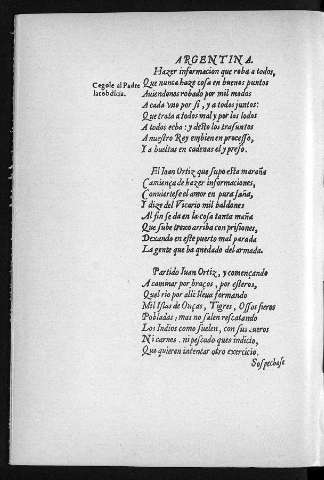 ARGENTINA.
Hazer informacion que roba a todos,
Que nunca haze cosa en buenos puntos
Cegole al Padre
la cobdicia.
Auiendonos robado por mil modos
A cada vno por si, y a todos juntos:
Que trata a todos mal y por los lodos
A todos echa: y desto los trasuntos
A nuestro Rey embien en processo,
Y a bueltas en cadenas el y preso.
El Iuan Ortiz que supo esta maraña
Comiença de hazer informaciones,
Conuiertese el amor en pura saña,
Y dize del Vicario mil baldones
Al fin se da en la cosa tanta maña
Que sube troxo arriba con prisiones,
Dexando en este puerto mal parada
La gente que ha quedado del armada.
Partido Iuan Ortiz, y començando
A caminar por braços, por esteros,
Quel rio por alli lleua formando
Mil Islas de Onças, Tigres, Ossos fieros
Pobladas, mas no salen rescatando
Los Indios como suelen, con sus cueros
Ni carnes, ni pescado ques indicio,
Que quieren intentar otro exercicio.
Sospechase